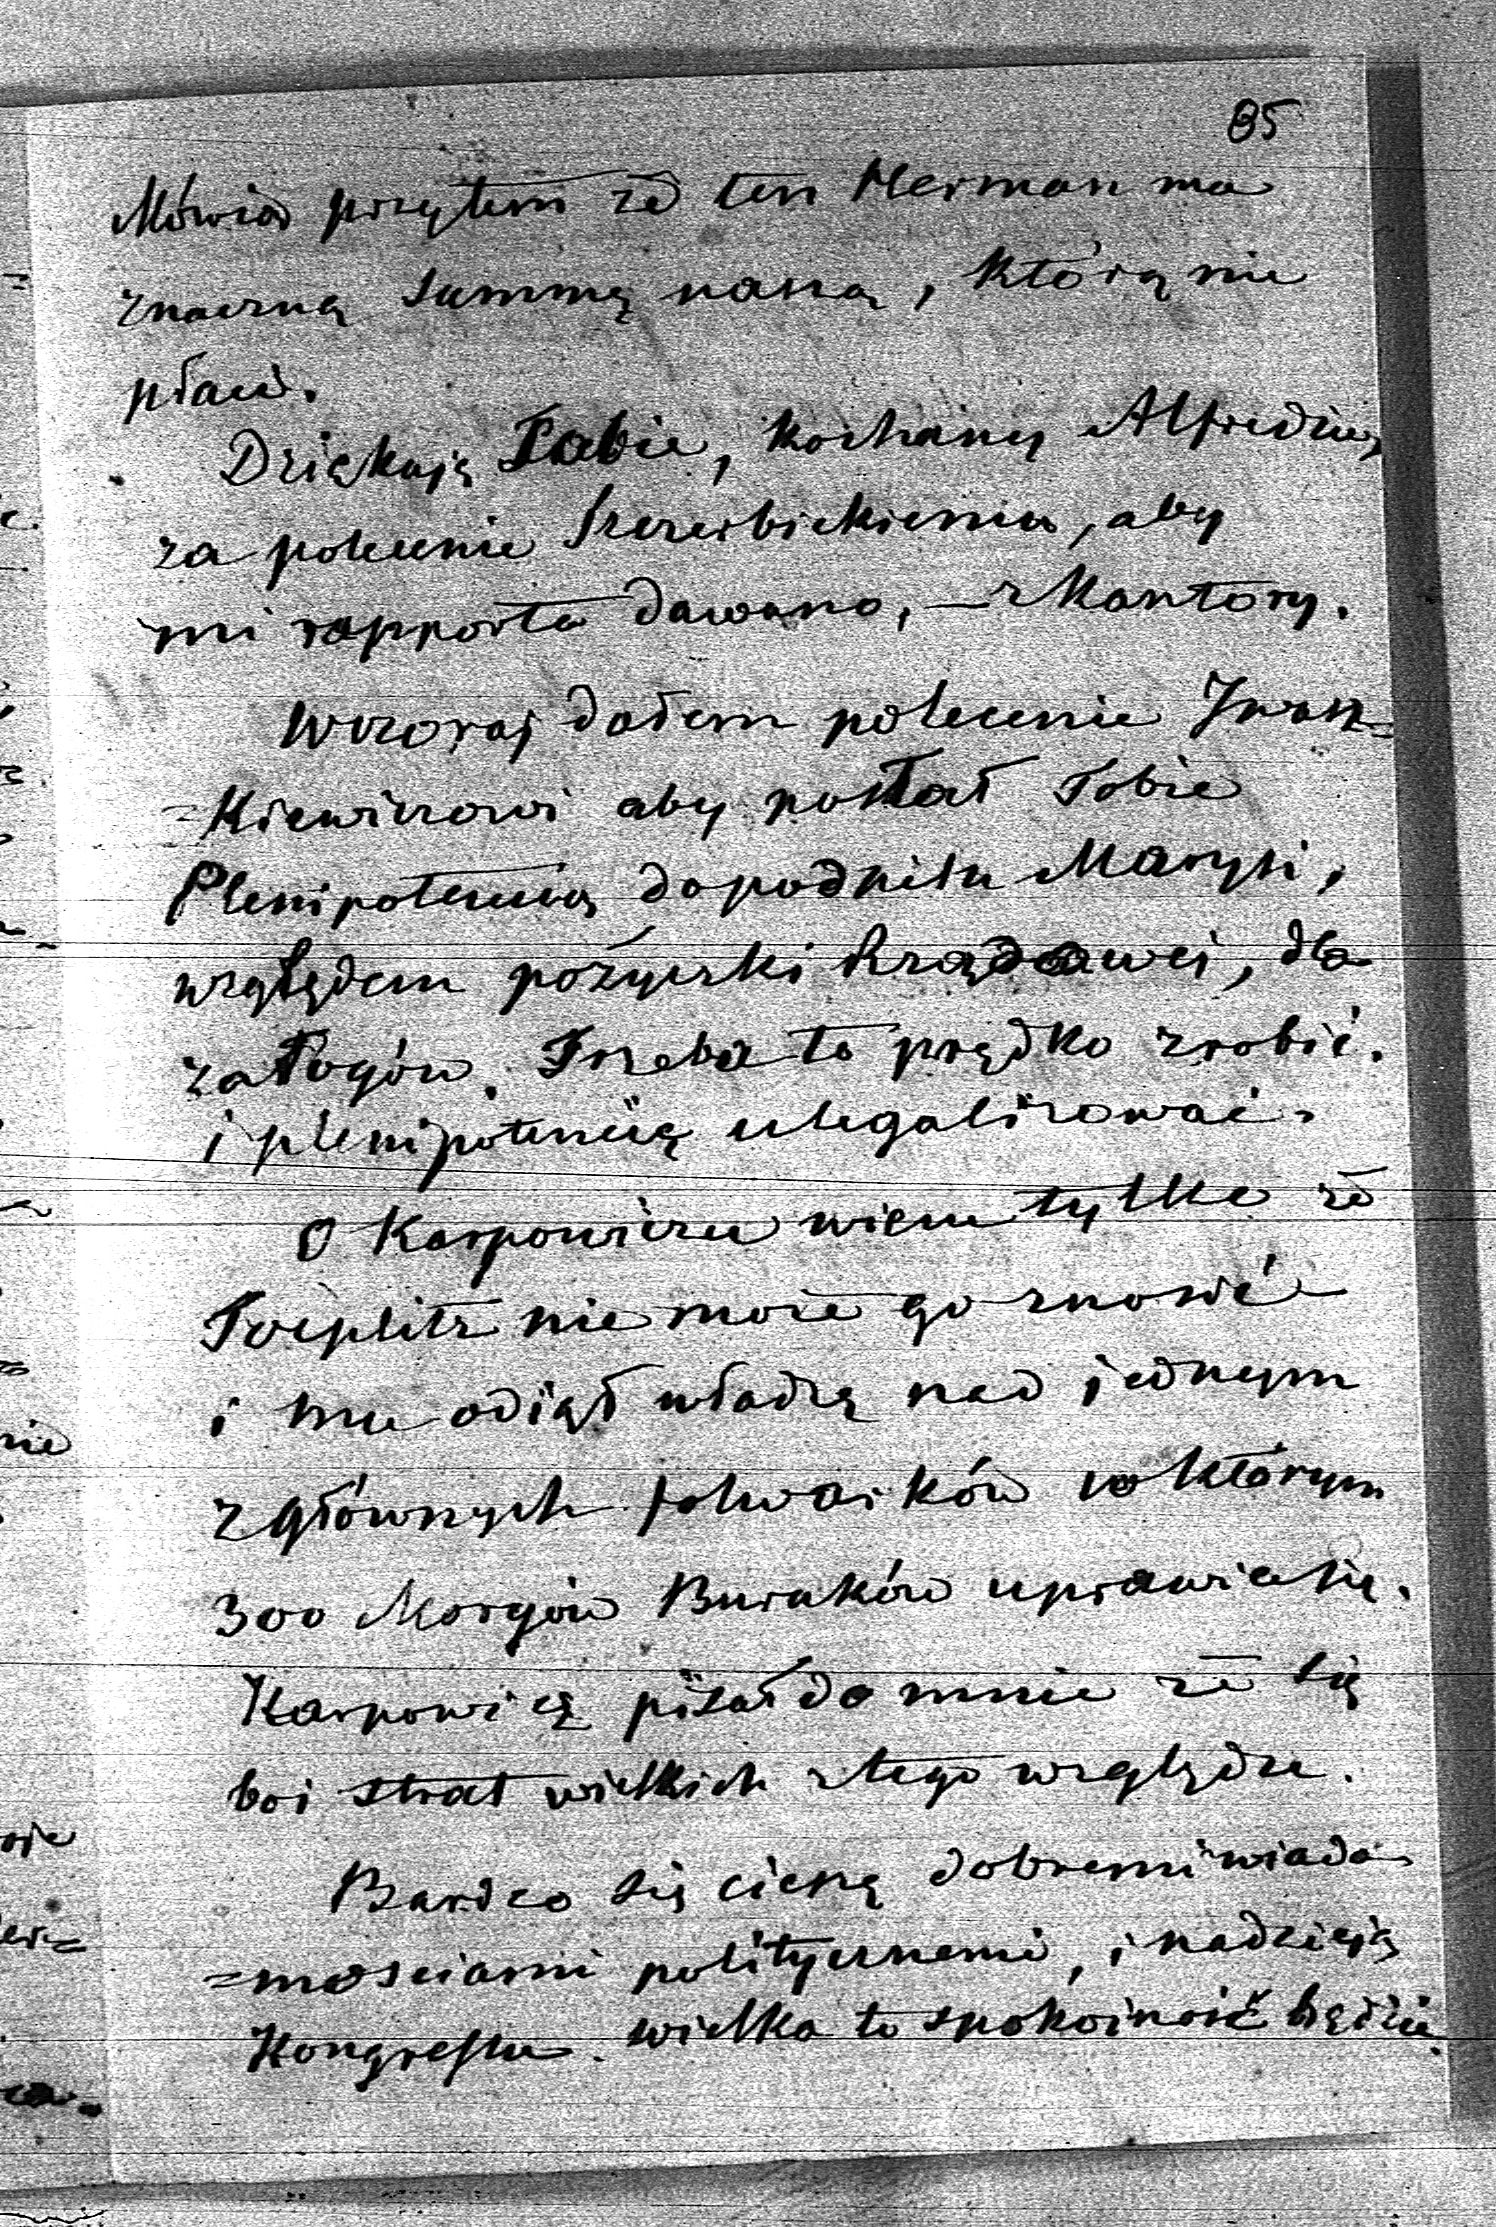 85
Mówią przytem że ten Herman ma
znaczną summę naszą, którą nie
płaci.
Dziękuję Tobie, kochany Alfredzie,
za polecenie Szczerbickiemu, aby
mi rapporta dawano, — z Kantory.
Wczoraj dałem polecenie Iwasz=
=Kiewiczowi aby posłał Tobie
Plenipotencią do podpisu Marysi,
względem pożyczki Rządowej, dla
załogów. Trzeba to prędko zrobić.
i plenipotencię ulegalizować.
O Karpowiczu wiem tylko że
Toeplitz nie może go znosić
i mu odiął władzę nad jednym
z głównych folwarków w którym
300 Morgów Buraków uprawia się.
Karpowicz pisał do mnie że się
boi strat wielkich z tego względu.
Bardzo się cieszę dobremi wiado=
=mosciami politycznemi, i nadzieją
Kongressu. wielka to spokoiność będzie.